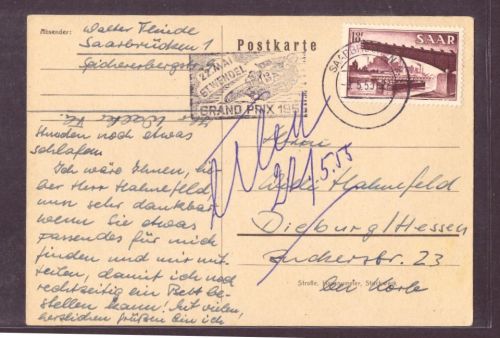 Absender:
Walter Fleinde
Saarbrücken 1
Spichererbergstr.
Postkarte
22. MAI
ST WENDEL
GRAND PRIX 195
SAARBRÜCKEN
5.55
18F
SAAR
Stunden noch etwas
schlafen
Ich wäre Ihnen, lie-
ber Herr Hahnefeld
nun sehr dankbar
wenn Sie etwas
passendes für mich
finden und mir mit-
teilen, damit ich noch
rechtzeitig ein Bett be-
stellen kann! Mit vielen,
herzlichen Grüßen bin ich
21/5.55
Hahnefeld
Dieburg/Hessen
Zuckerstr. 23
Straße, Hausnummer,
bei